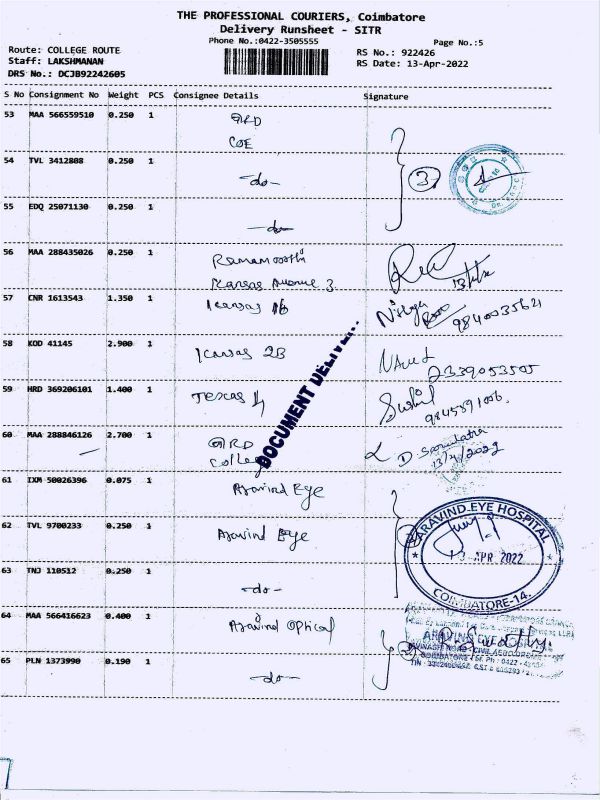 THE PROFESSIONAL COURIERS, Coimbatore
Delivery Runsheet - SITR
Phone No.:0422-3505555
Page No.:5
Route: COLLEGE ROUTE
Staff: LAKSHMANAN
DRS No.: DCJB92242605
RS No.: 922426
RS Date: 13-Apr-2022
S No Consignment No Weight PCS Consignee Details Signature
53 MAA 566559510 0.250 1 GRD
COE
54 TVL 3412808 0.250 1 -do-
3
55 EDQ 25071130 0.250 1 -do-
56 MAA 288435026 0.250 1 Ramamoorthi
Kansas Avenue 3
57 CNR 1613543 1.350 1 Kansas 1B Nithya
9840035621
58 KOD 41145 2.900 1 Kansas 2B
2339053505
59 HRD 369206101 1.400 1 Texas 4 Sushil
9845391006
DOCUMENT DELIVE
60 MAA 288846126 2.700 1 GRD
College
13/4/2022
61 IXM 50026396 0.075 1 Aravind Eye
62 TVL 9700233 0.250 1 Aravind Eye
ARAVIND EYE HOSPITAL
13 APR 2022
COIMBATORE-14.
63 TNJ 110512 0.250 1 -do-
64 MAA 566416623 0.400 1 Aravind Optical
ARAVIND EYE HOSPITAL
65 PLN 1373990 0.190 1 -do-
2